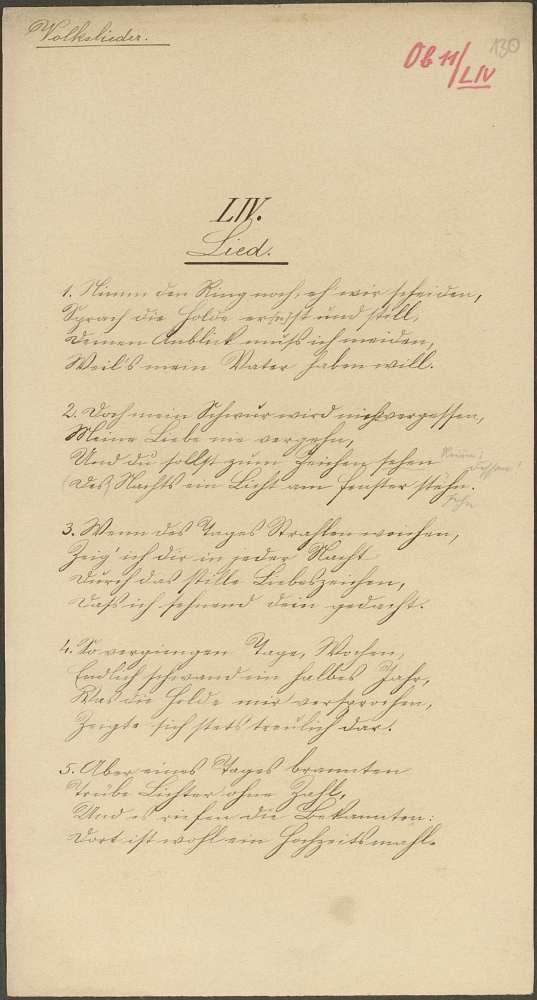 Volkslieder.
Ob 11/LIV
130
LIV.
Lied.
1. Nimm den Ring noch, eh' wir scheiden,
Sprach die Holde ernst und still,
Deinen Anblick muß ich meiden,
Weil's mein Vater haben will.
2. Doch mein Schwur wird nicht vergessen,
Meine Liebe nie vergehn,
Und du sollst zum Zeichen sehen
(Des) Nachts ein Licht am Fenster stehn.
3. Wenn des Tages Strahlen weichen,
Zeig' ich dir in jeder Nacht
Durch das stille Liebeszeichen,
Daß ich sehnend dein gedacht.
4. So vergiengen Tage, Wochen,
Endlich schwand ein halbes Jahr,
Was die Holde mir versprochen,
Zeigte sich stets treulich dar.
5. Aber eines Tages brannten
Trübe Lichter ohne Zahl,
Und es riefen die Bekannten:
Dort ist wohl ein Hochzeitsmahl.